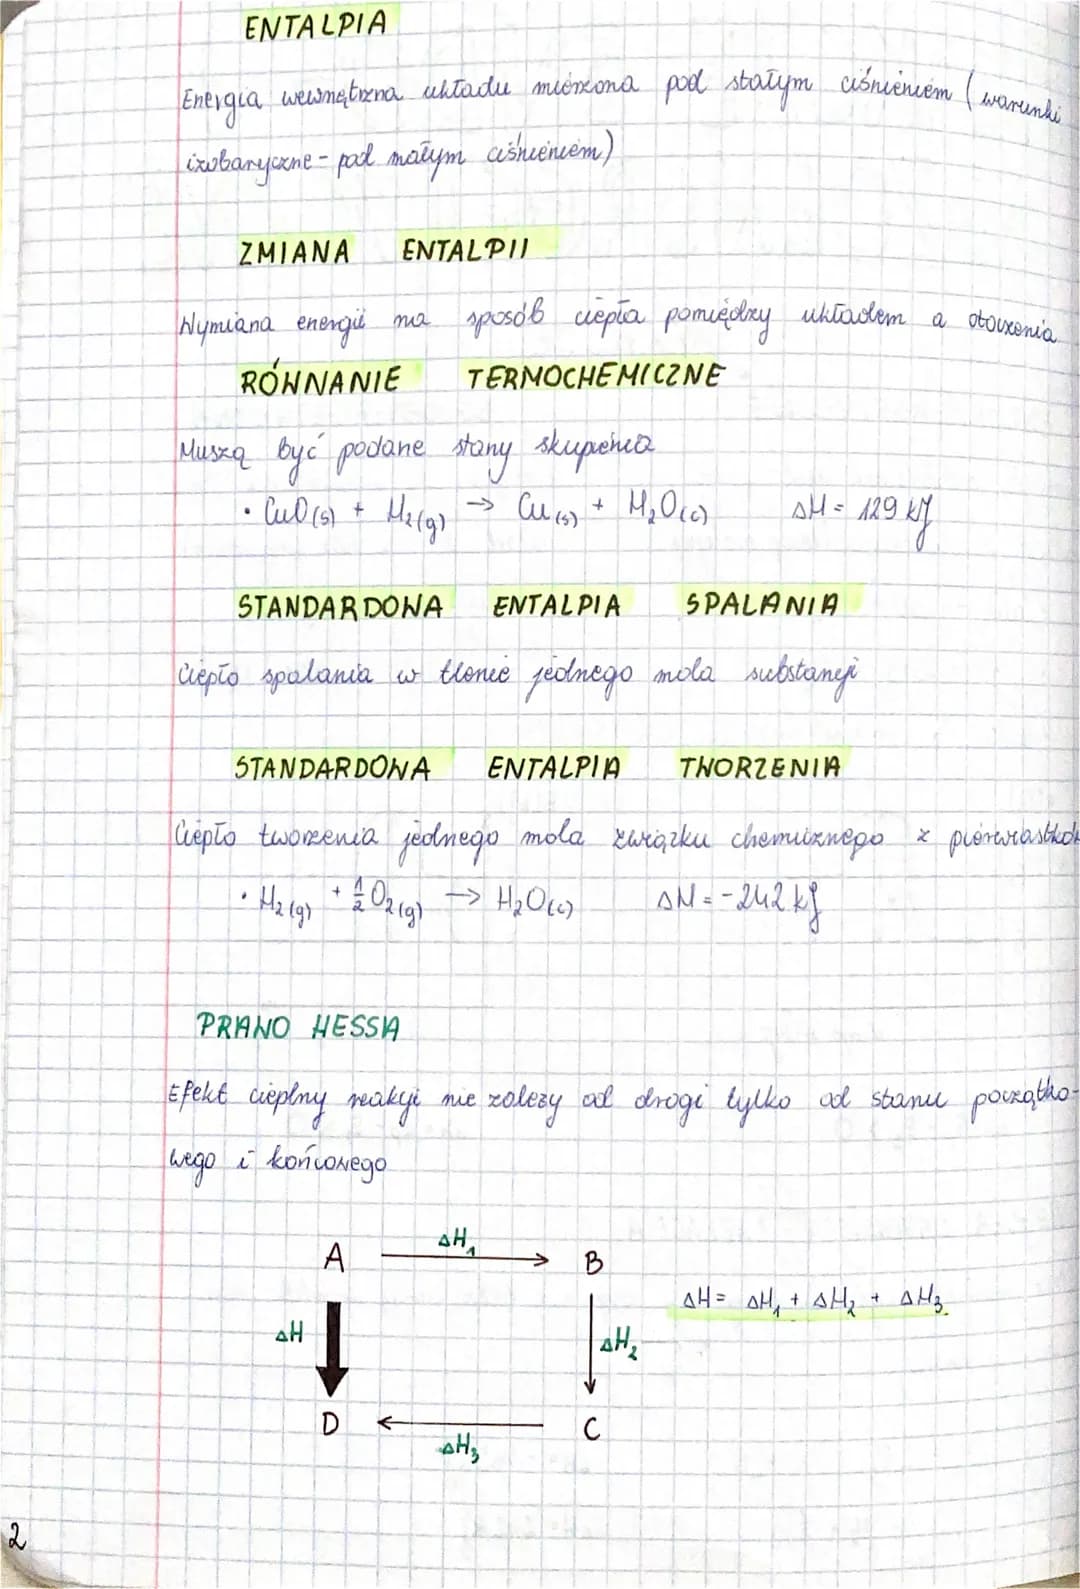 ENTALPIA
Energia wewnętrzna układu mierzona pod stałym ciśnieniem (warunki
izobaryczne - pod małym ciśnieniem)
ZMIANA ENTALPII
Wymiana energii na sposób ciepła pomiędzy układem a otoczenia
RÓWNANIE TERMOCHEMICZNE
Muszą być podane stany skupienia
• CuO(s) + H₂(g) → Cu(s) + H₂O(c) ΔH = 129 kJ
STANDARDOWA ENTALPIA SPALANIA
Ciepło spalania w tlenie jednego mola substancji
STANDARDOWA ENTALPIA TWORZENIA
Ciepło tworzenia jednego mola związku chemicznego z pierwiastków
• H₂(g) + ½ O₂(g) → H₂O(c) ΔH = -242 kJ
PRAWO HESSA
Efekt cieplny reakcji nie zależy od drogi tylko od stanu początko-
wego i końcowego
A ΔH₁ B
ΔH = ΔH₁ + ΔH₂ + ΔH₃
ΔH ΔH₂
D ΔH₃ C
2